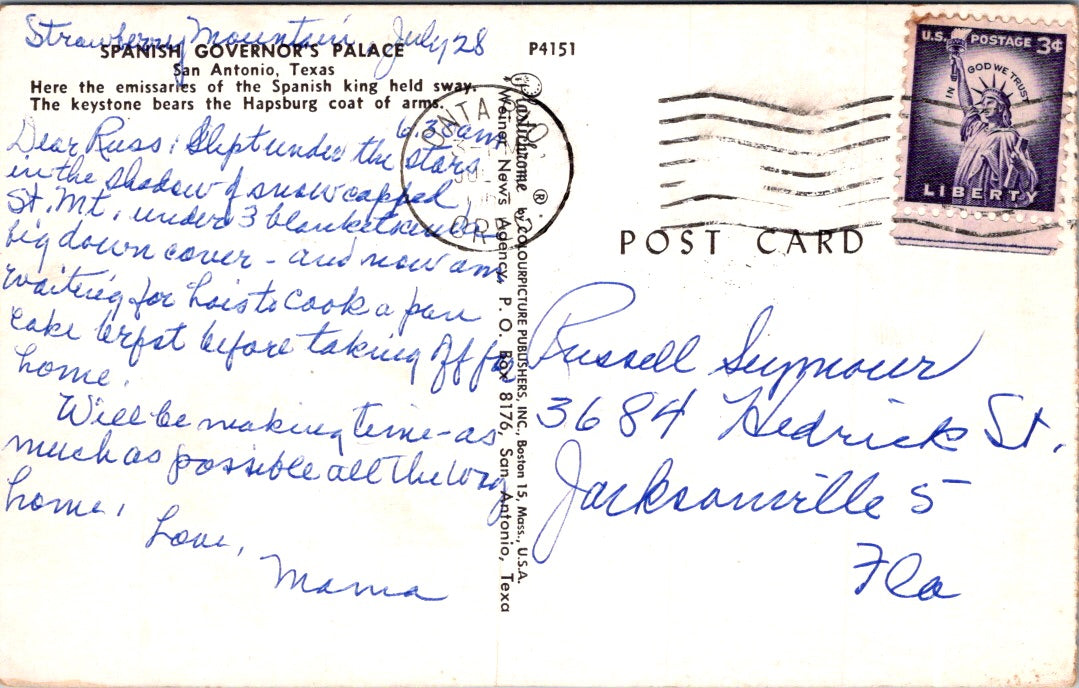 Strawberry Mountain, July 28
SPANISH GOVERNOR'S PALACE
San Antonio, Texas
Here the emissaries of the Spanish king held sway.
The keystone bears the Hapsburg coat of arms.
6:30 am
Dear Russ: Slept under the stars
in the shadow of snow capped
St. Mt. under 3 blankets
big down cover - and now am
waiting for Lois to cook a pan
cake brfst before taking off for
home.
Will be making time - as
much as possible all the way
home.
Love,
Mama
P4151
Plastichrome ® by COLOURPICTURE PUBLISHERS, INC., Boston 15, Mass., U.S.A.
Weiner News Agency, P. O. Box 8176, San Antonio, Texa
ONTARIO
JUL
ORE
U.S. POSTAGE 3¢
IN GOD WE TRUST
LIBERTY
POST CARD
Russell Seymour
3684 Hedrick St.
Jacksonville 5
Fla